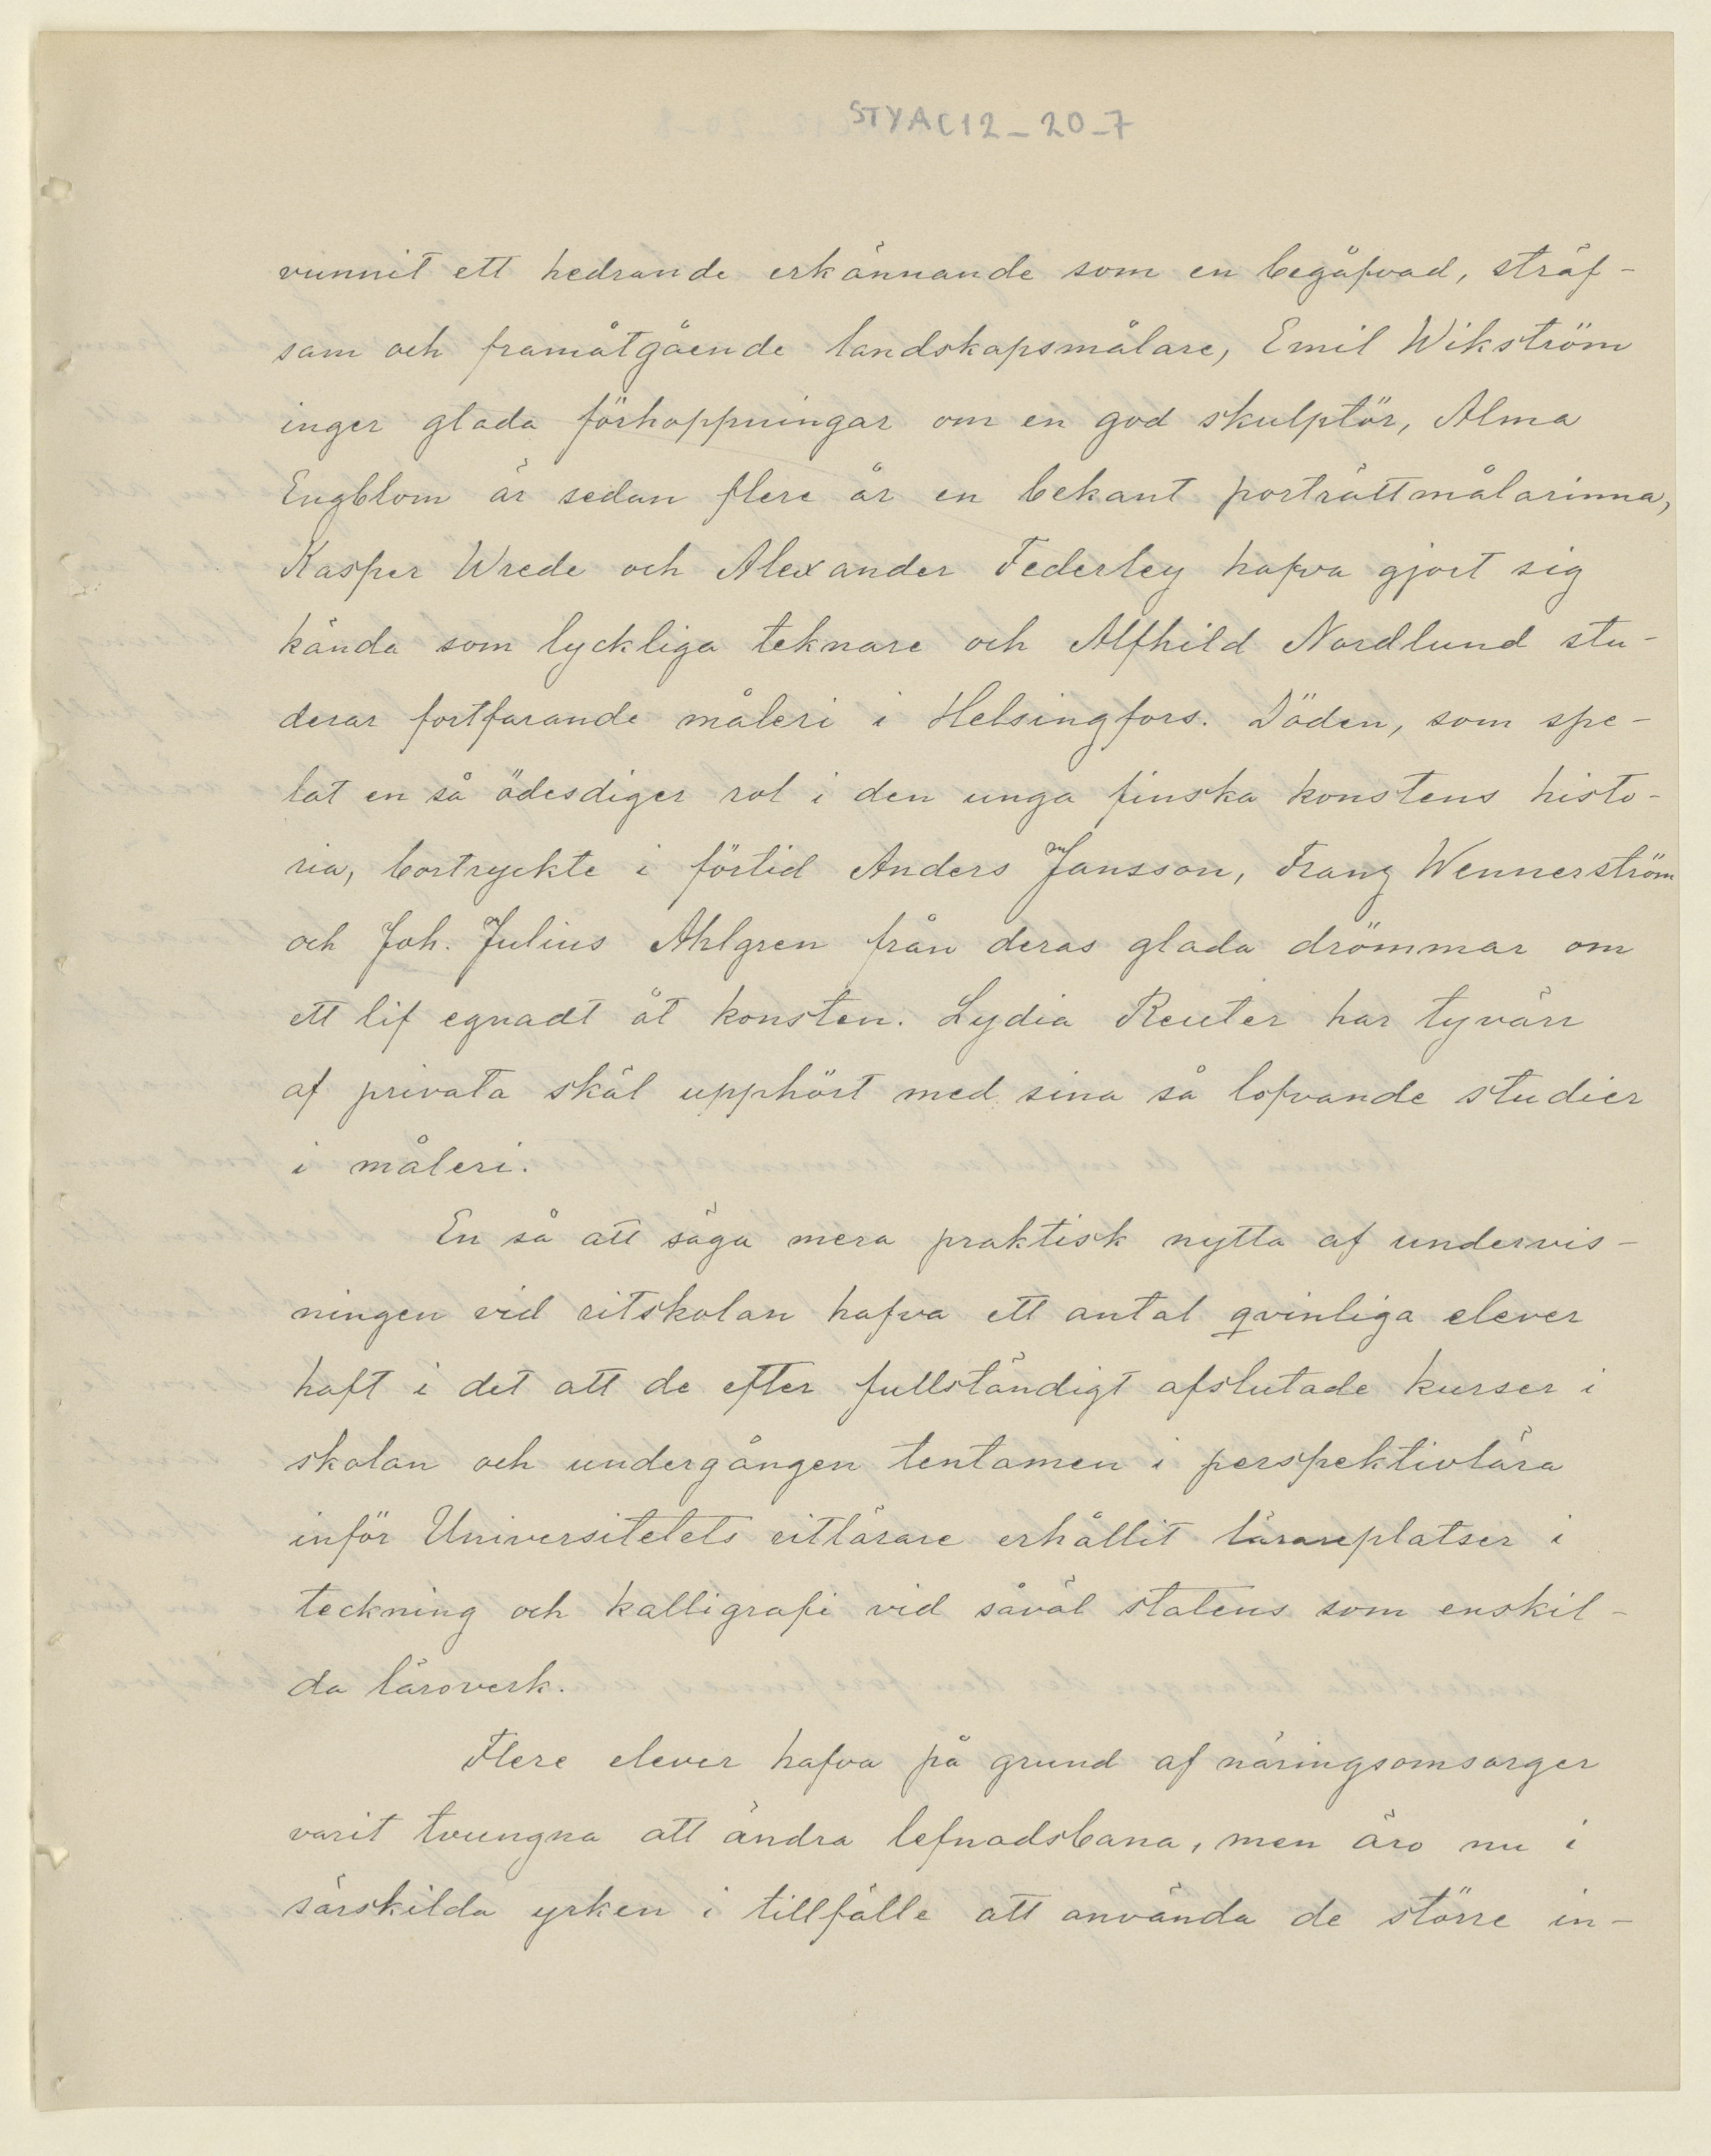 STYAC12_20_7
vunnit ett hedrande erkännande som en begåfvad, sträf-
sam och framåtgående landskapsmålare, Emil Wikström
inger glada förhoppningar om en god skulptör, Alma
Engblom är sedan flere år en bekant porträttmålarinna,
Kasper Wrede och Alexander Federley hafva gjort sig
kända som lyckliga teknare och Alfhild Nordlund stu-
derar fortfarande måleri i Helsingfors. Döden, som spe-
lat en så ödesdiger rol i den unga finska konstens histo-
ria, bortryckte i förtid Anders Jansson, Franz Wennerström
och Joh. Julius Ahlgren från deras glada drömmar om
ett lif egnadt åt konsten. Lydia Reuter har tyvärr
af privata skäl upphört med sina så lofvande studier
i måleri.
En så att säga mera praktisk nytta af undervis-
ningen vid ritskolan hafva ett antal qvinliga elever
haft i det att de efter fullständigt afslutade kurser i
skolan och undergången tentamen i perspektivlära
inför Universitetets ritlärare erhållit lärareplatser i
teckning och kalligrafi vid såväl statens som enskil-
da läroverk.
Flere elever hafva på grund af näringsomsorger
varit tvungna att ändra lefnadsbana, men äro nu i
särskilda yrken i tillfälle att använda de större in-